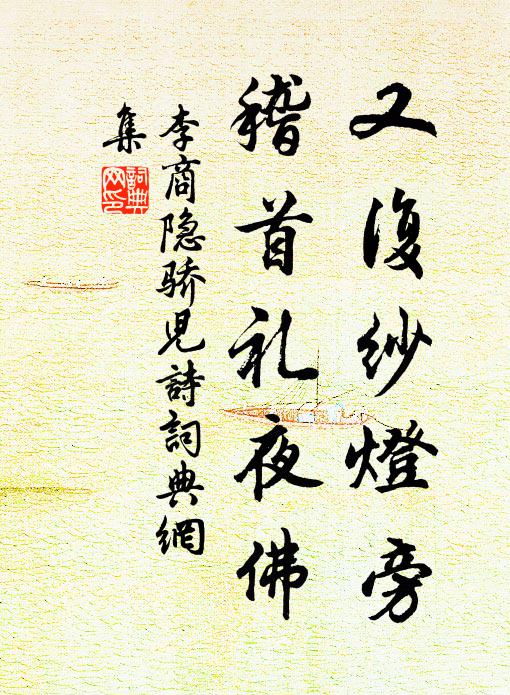 又復紗燈旁
稽首礼夜佛
李商隐骄児詩詞典網
集
詞典
网印